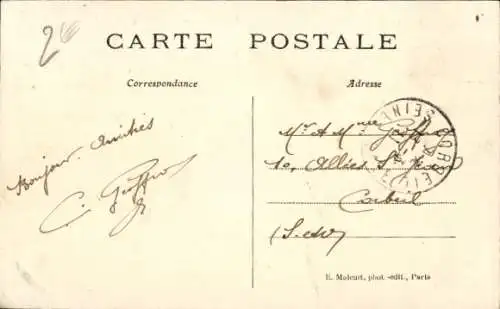 CARTE POSTALE
Correspondance
Adresse
Bonjour. Amitiés
C. Geoffroy
Mr & Mme Geoffroy
10, Allées St Jean
Corbeil
(S. & O.)
CORBEIL
SEINE
E. Malcuit, phot.-édit., Paris